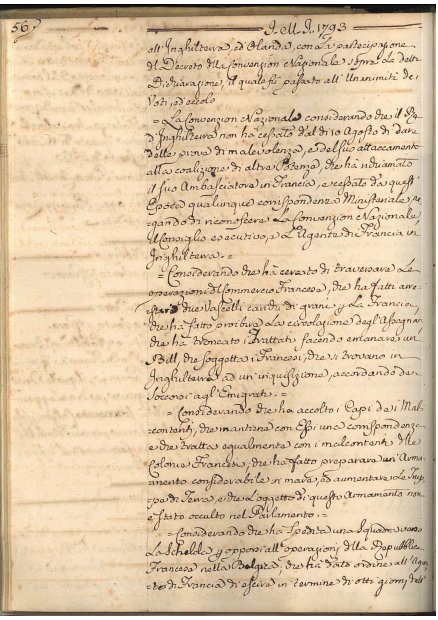 56.
J. M. J. 1793
all'Inghilterra, ed Olanda, con la partecipazione
del Decreto della Convenzion Nazionale sopra le dette
Dichiarazione, il quale fu passato all'Unanimità de
Voti, ed eccolo
= La Convenzion Nazionale considerando che il Rè
d'Inghilterra non ha cessato dal dì 10 Agosto di dare
delle prove di malevolenza, e del suo attaccamento
alla coalizione di altre Potenze, che hà richiamato
il suo Ambasciatore in Francia, e cessato da quest'
Epoca qualunque corrispondenza Ministeriale, ne
gando di riconoscere la Convenzione Nazionale,
il Consiglio esecutivo, e l'Agente di Francia in
Inghilterra. =
= Considerando che hà cercato di traversare le
operazioni del Commercio Francese, che hà fatti arre
stare due Vascelli carichi di grani p. la Francia,
che hà fatto proibire la circolazione degl'Assegnati
che hà troncato i Trattati facendo emanare un
Bill, che soggetta i Francesi, che si trovano in
Inghilterra ad un'inquisizione, accordando de
Soccorsi agl'Emigrati. =
= Considerando che ha accolto i Capi dei Mal-
contenti, che mantiene con Essi una corrispondenza
e che tratta egualmente con i malcontenti delle
Colonie Francesi; che hà fatto preparare un'Arma-
mento considerabile in mare, ed aumentare le Trup-
pe di Terra, e che l'oggetto di questo Armamento non
è stato occulto nel Parlamento. =
= Considerando che hà spedita una Squadra verso
la Schelda p. opporsi all'operazioni della Repubblica
Francese nella Belgica; che hà data ordine all'Agen
te di Francia di escire in termine di otto giorni dall'